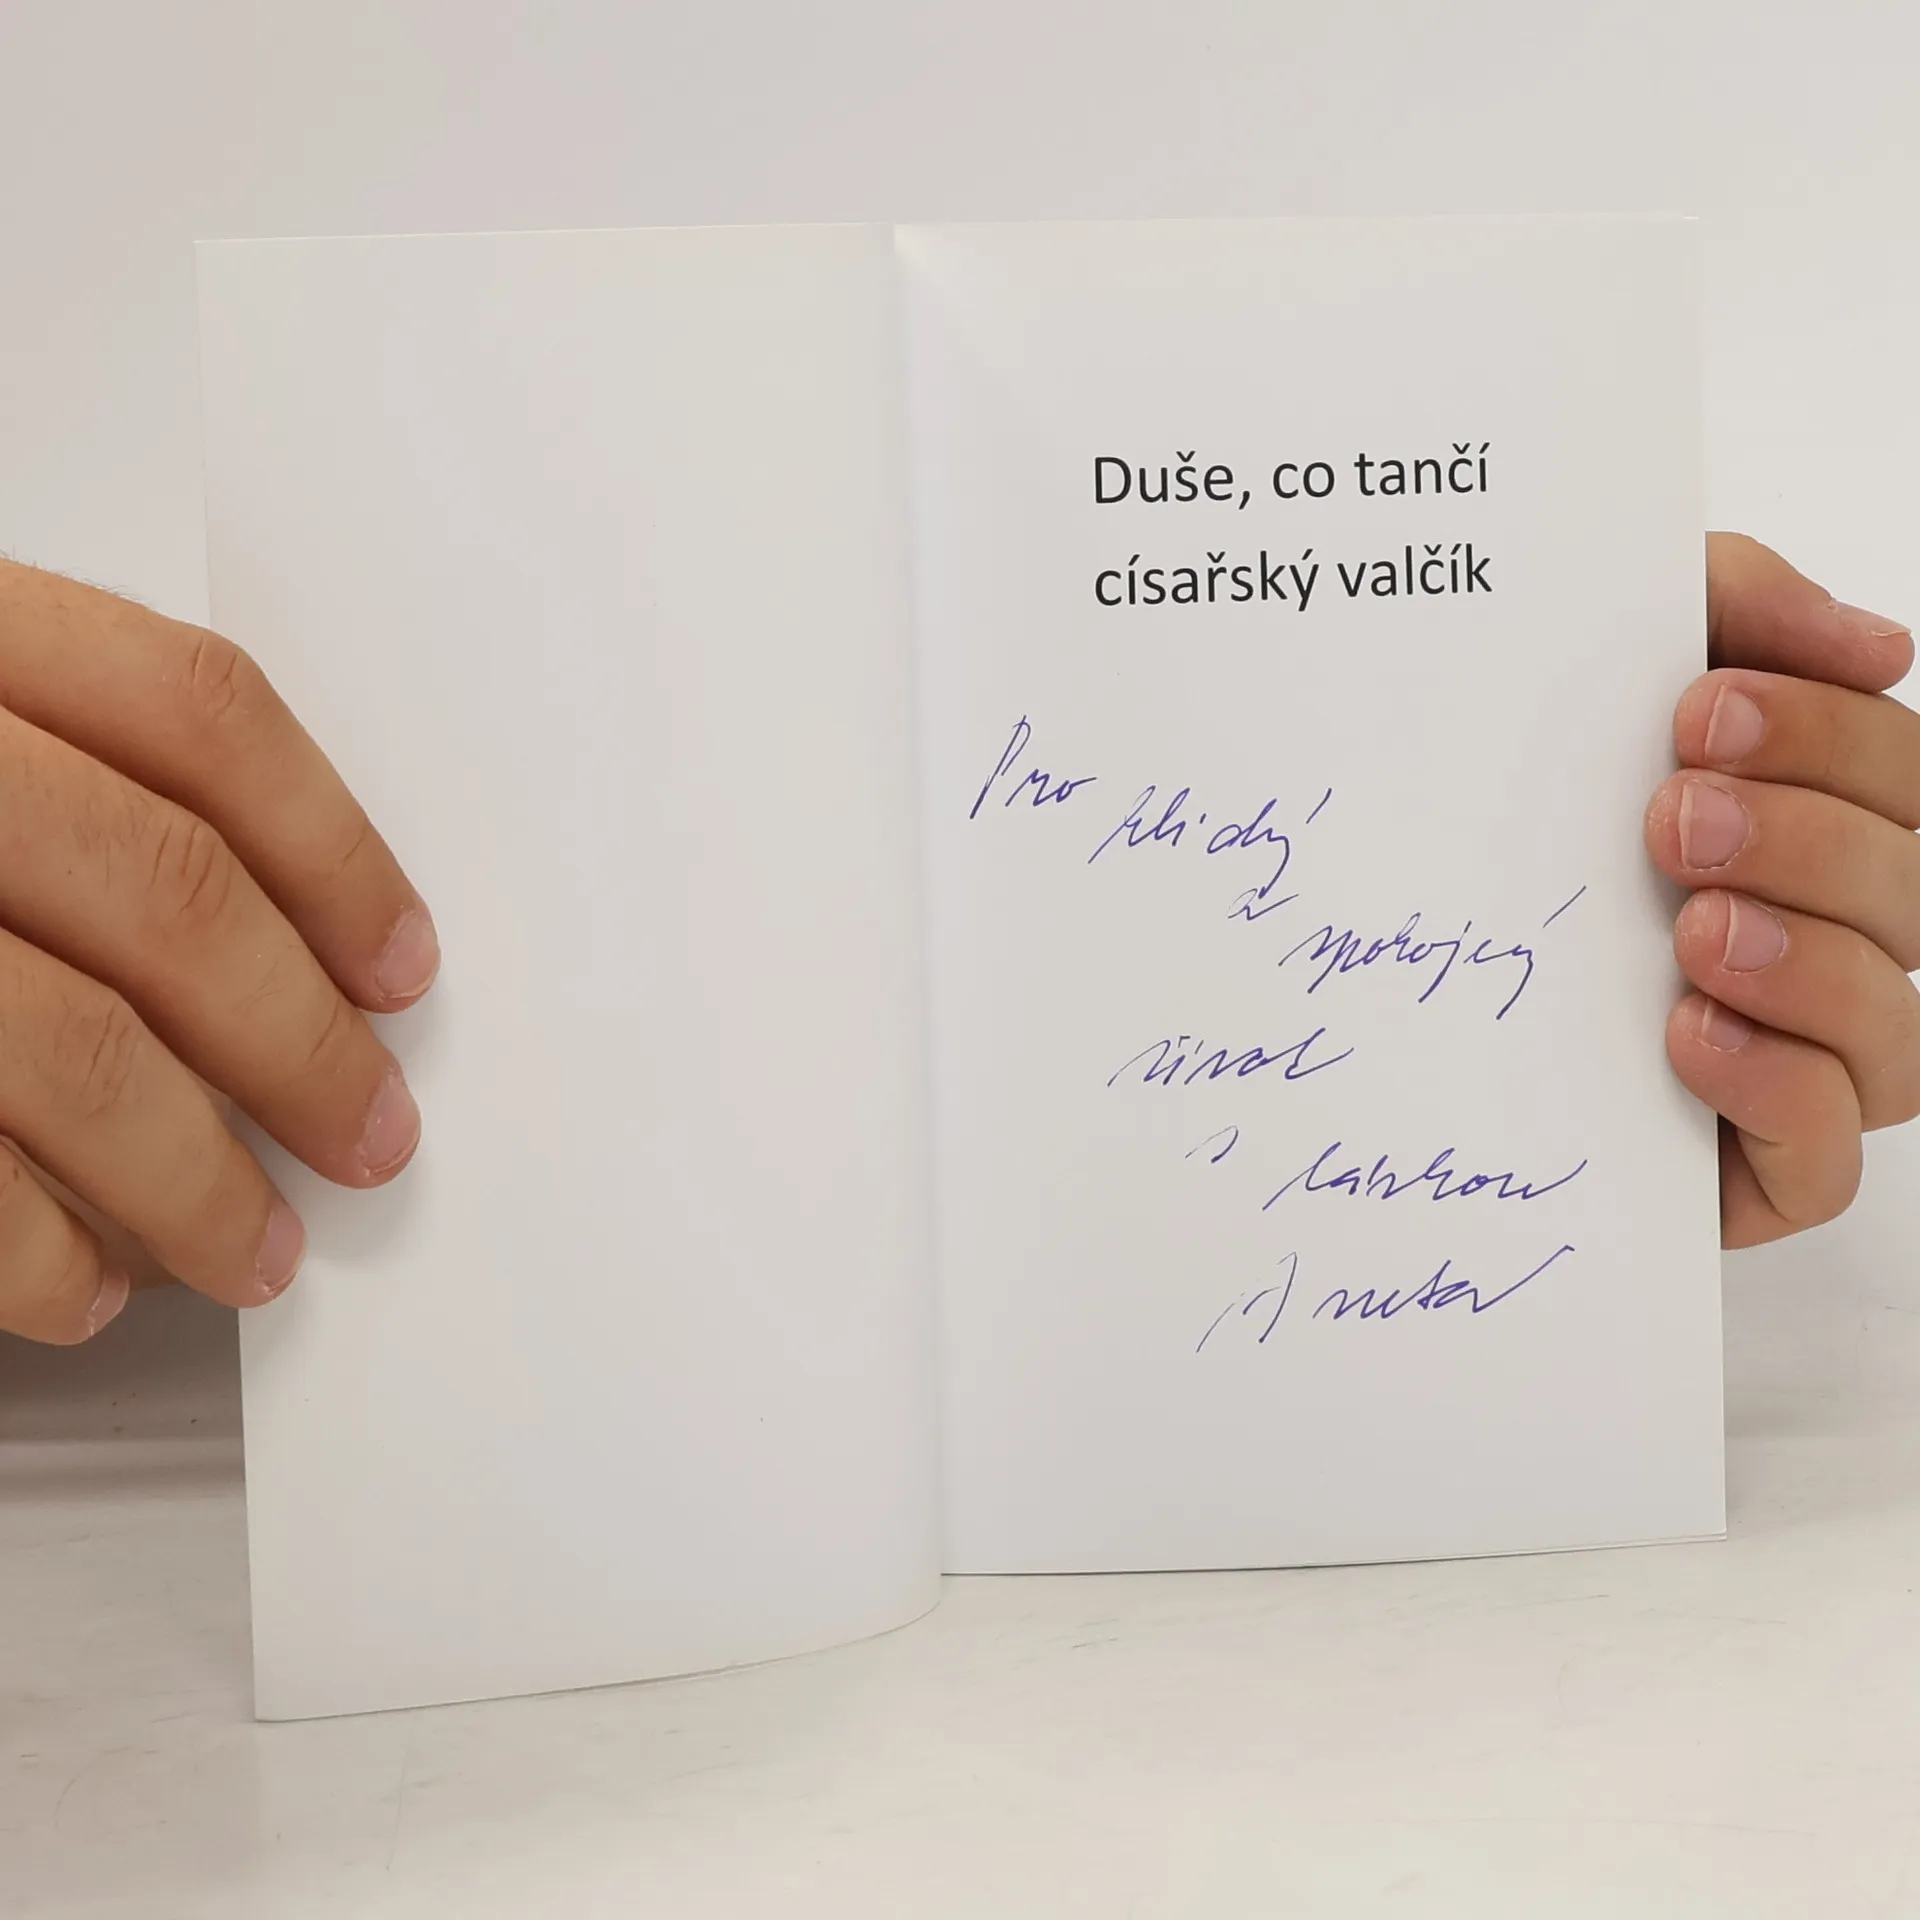 Duše, co tančí
císařský valčík
Pro klidný
a
spokojený
život
s láskou
Aneta